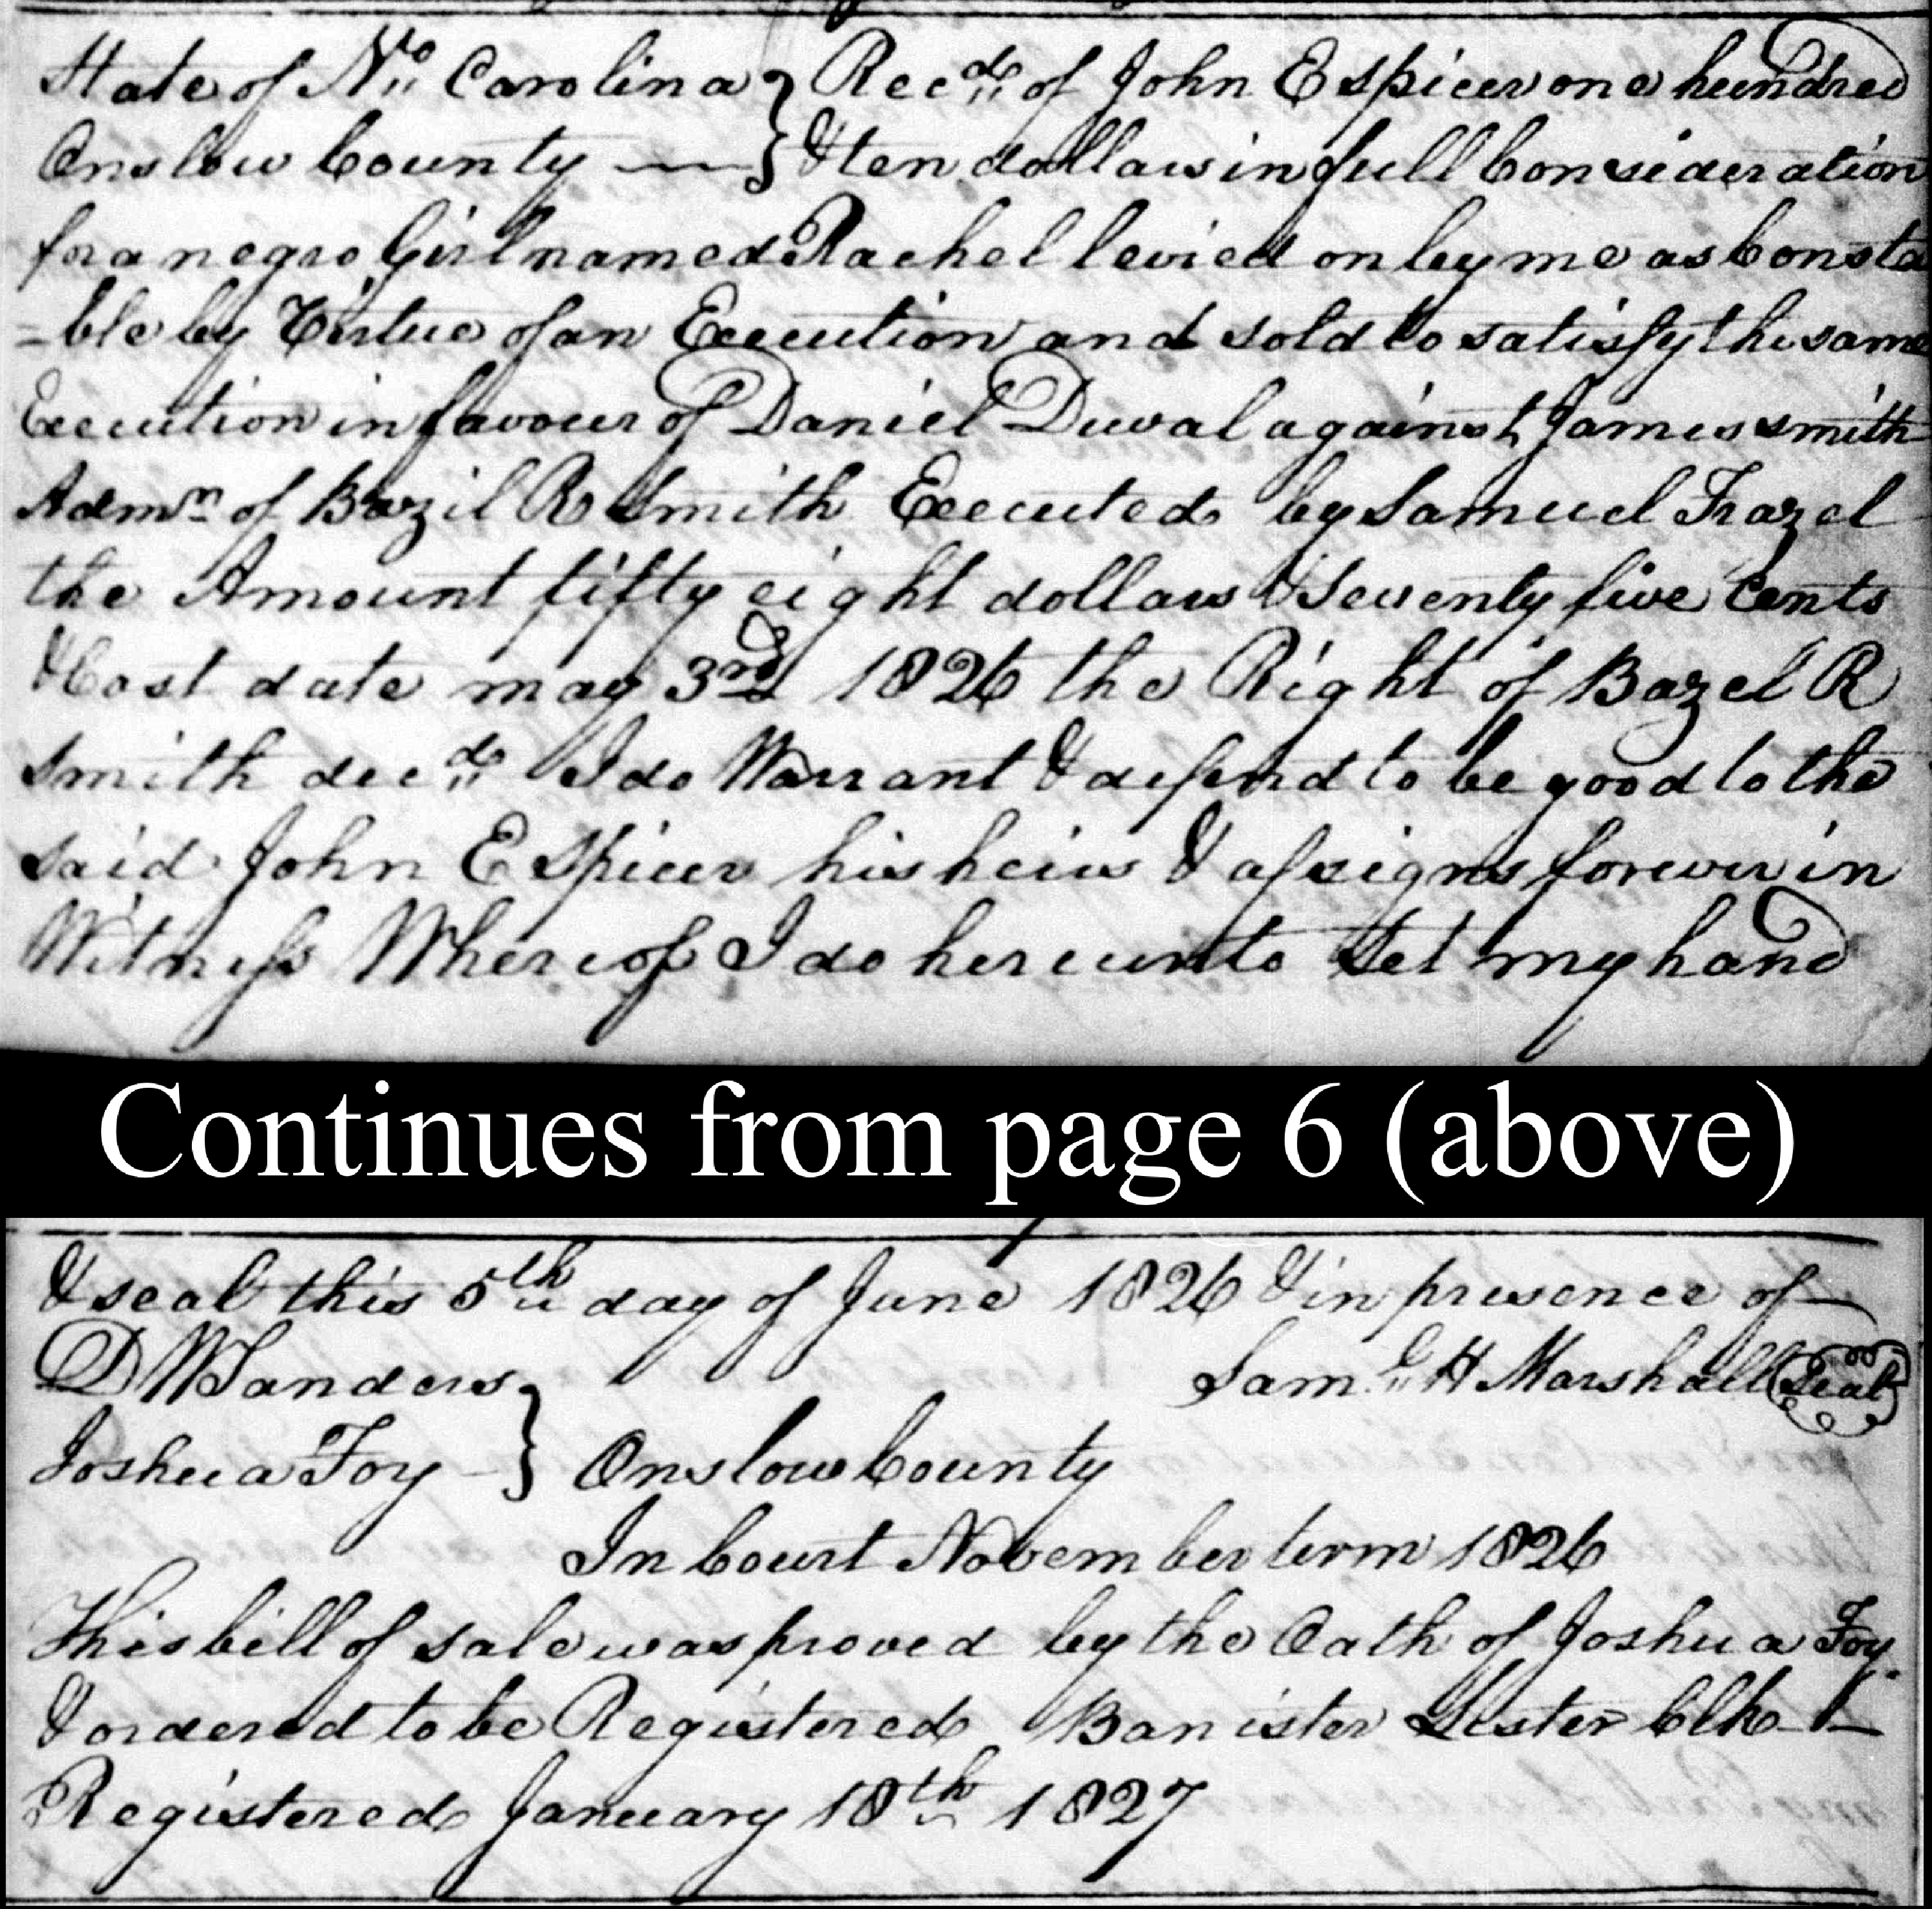 State of No. Carolina } Recd. of John E Spicer one hundred
Onslow County — } & ten dollars in full Consideration
for a negro Girl named Rachel levied on by me as Consta
-ble by Virtue of an Execution and sold to satisfy the same
Execution in favour of Daniel Duval against James Smith
Admrn of Bazil R Smith Executed by Samuel Frazel
the Amount fifty eight dollars & Seventy five Cents
& Cost date may 3rd 1826 the Right of Bazel R
Smith decd. I do Warrant & defend to be good to the
said John E Spicer his heirs & assigns forever in
Witness Whereof I do hereunto Set my hand
Continues from page 6 (above)
& seal this 5th day of June 1826 & in presence of
D W Sanders } Saml. H Marshall Seal
Joshua Foy } Onslow County
In Court November term 1826
This bill of sale was proved by the Oath of Joshua Foy
& ordered to be Registered Banister Lester Clk
Registered January 18th 1827